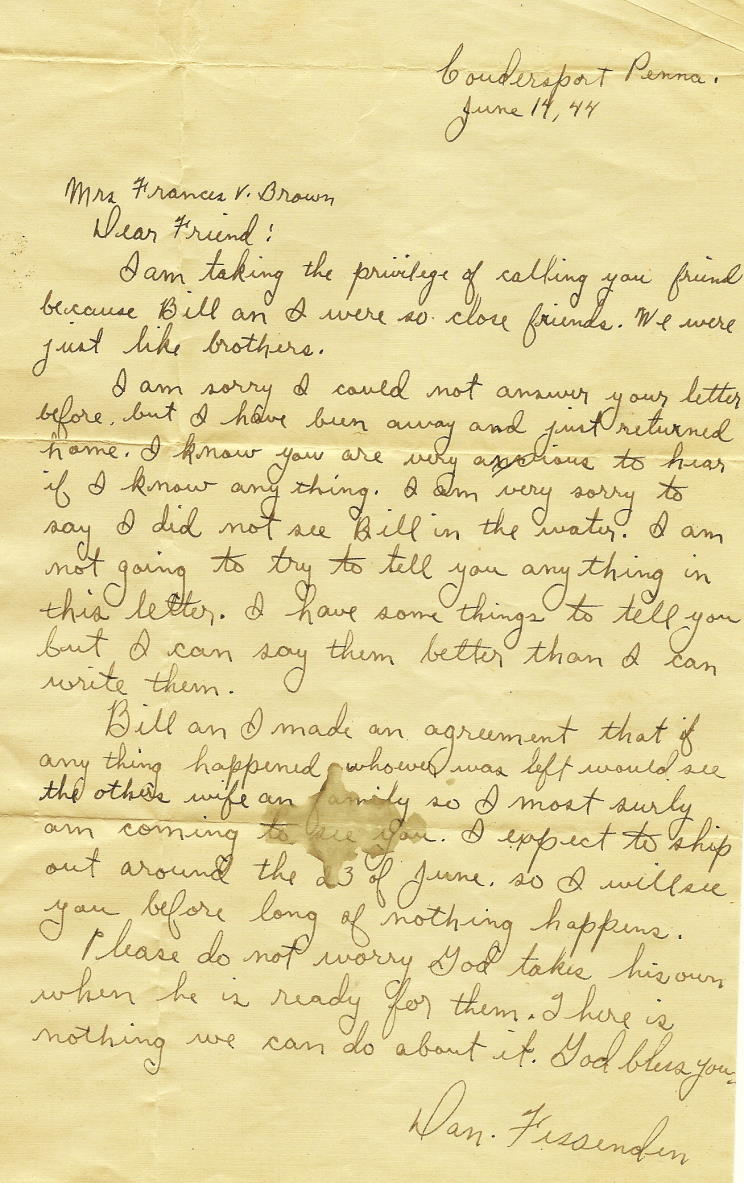 Coudersport Penna.
June 14, 44
Mrs Frances V. Brown
Dear Friend:
I am taking the privilege of calling you friend
because Bill an I were so close friends. We were
just like brothers.
I am sorry I could not answer your letter
before, but I have been away and just returned
home. I know you are very anxious to hear
if I know any thing. I am very sorry to
say I did not see Bill in the water. I am
not going to try to tell you any thing in
this letter. I have some things to tell you
but I can say them better than I can
write them.
Bill an I made an agreement that if
any thing happened whoever was left would see
the others wife an family so I most surly
am coming to see you. I expect to ship
out around the 23 of June. so I will see
you before long of nothing happens.
Please do not worry God takes his own
when he is ready for them. There is
nothing we can do about it. God bless you.
Dan. Fessenden